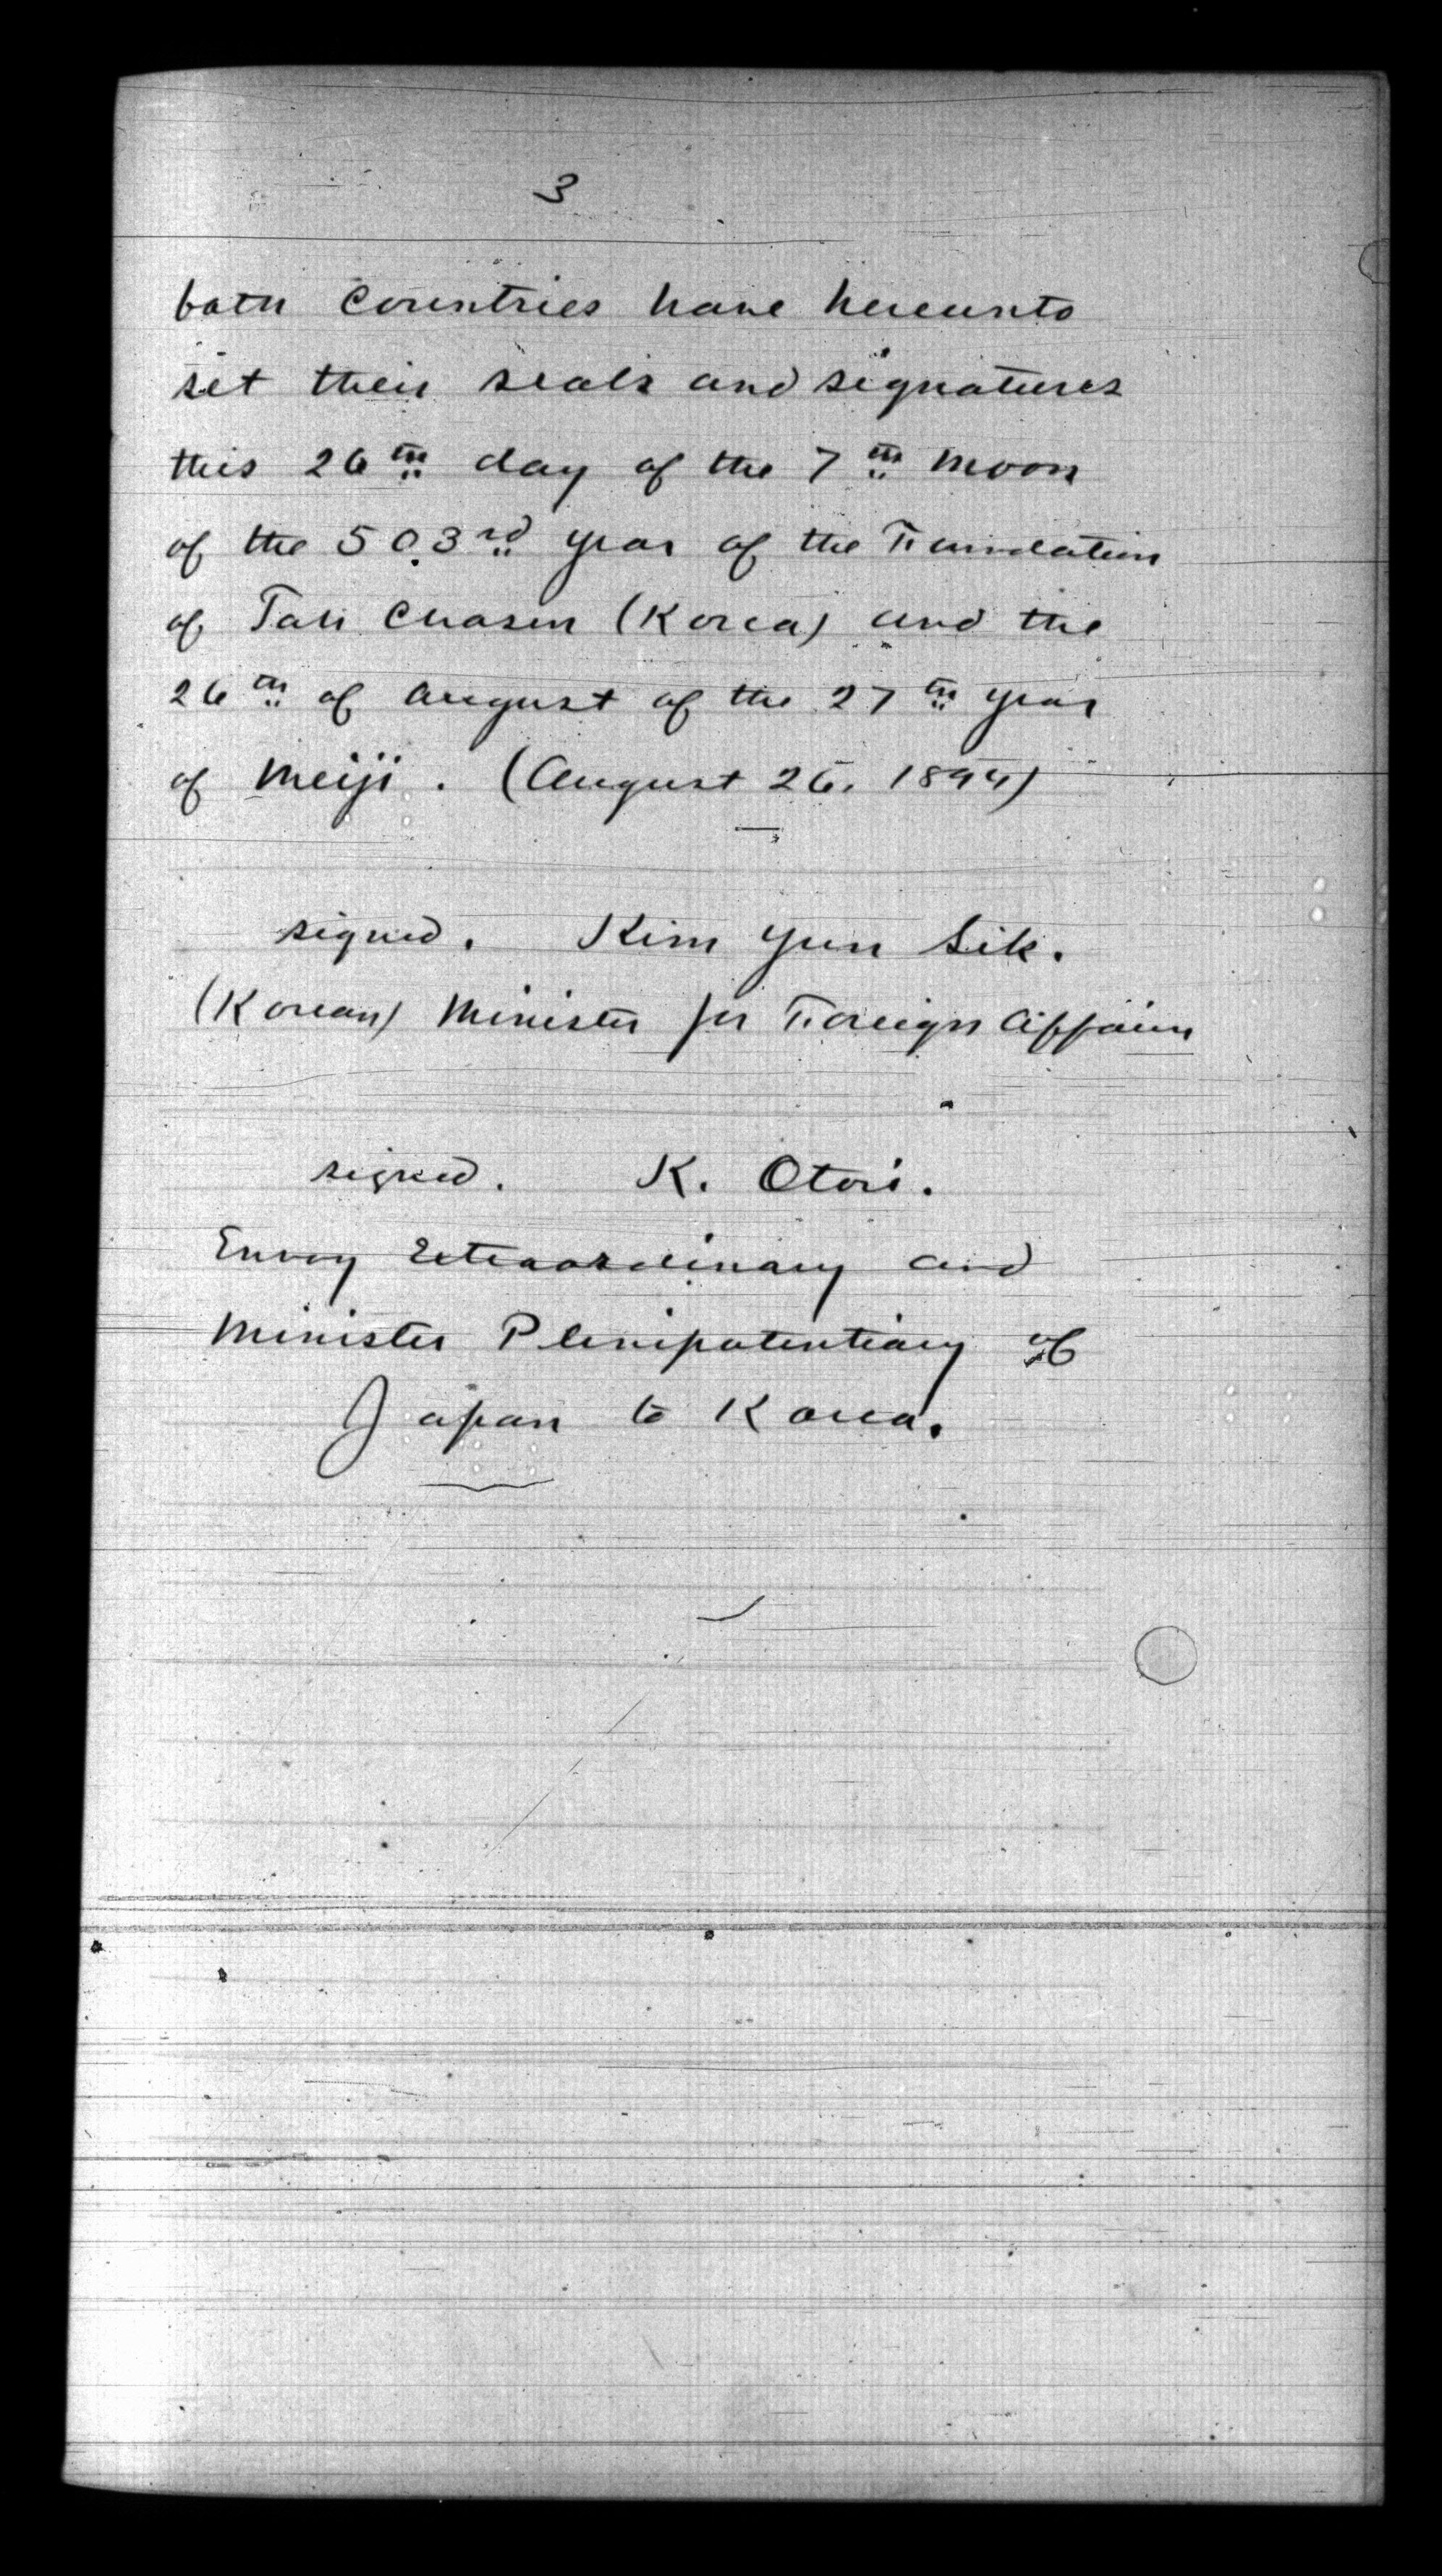 3
both Countries have hereunto
set their seals and signatures
this 26th day of the 7th Moon
of the 503rd year of the Foundation
of Tah Chosen (Korea) and the
26th of August of the 27th year
of Meiji. (August 26. 1894)
signed. Kim Yun Sik.
(Korean) Minister for Foreign Affairs
signed. K. Otori.
Envoy Extraordinary and
Minister Plenipotentiary of
Japan to Korea.